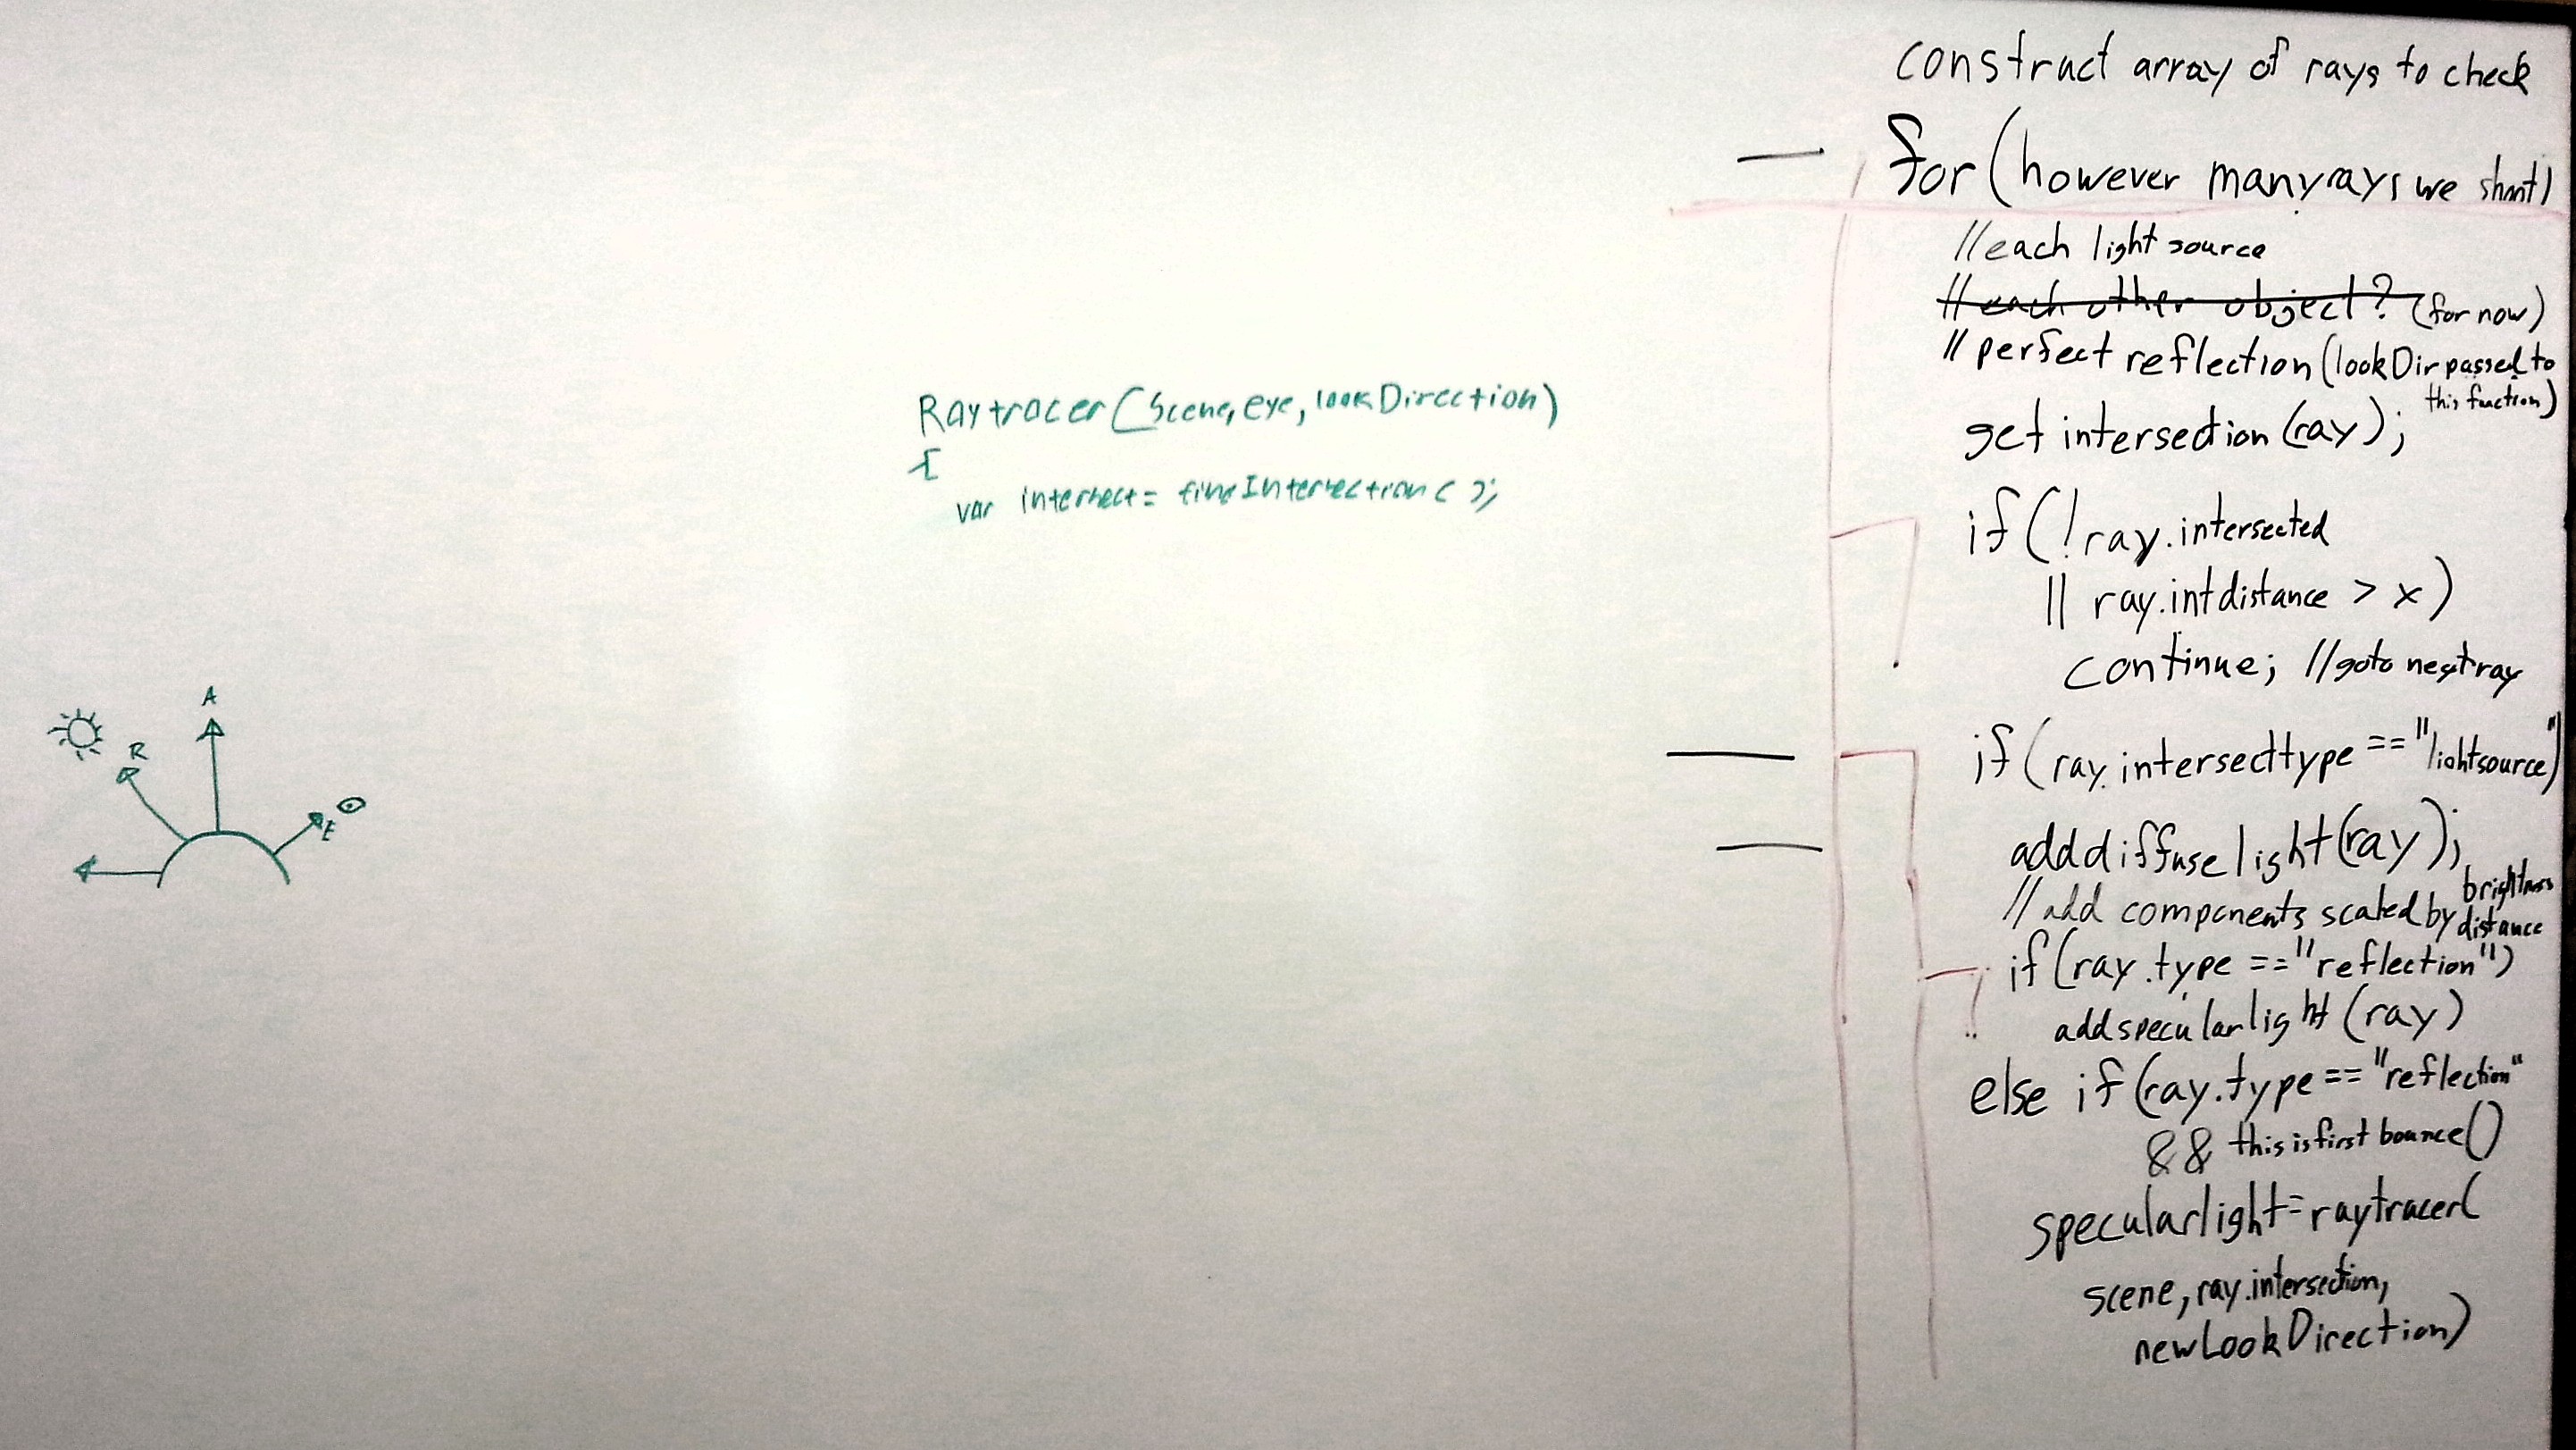 A
R
E
Raytracer(Scene, eye, lookDirection)
{
var intersect = findIntersection( );
construct array of rays to check
for (however many rays we shoot)
//each light source
//each other object? (for now)
//perfect reflection (lookDir passed to
this function)
get intersection (ray);
if (!ray.intersected
|| ray.intdistance > x)
continue; //goto next ray
if (ray.intersecttype == "lightsource")
adddiffuselight(ray);
brightness
//add components scaled by distance
if (ray.type == "reflection")
addspecularlight (ray)
else if (ray.type == "reflection"
&& thisisfirstbounce()
specularlight = raytracer(
scene, ray.intersection,
newLookDirection)